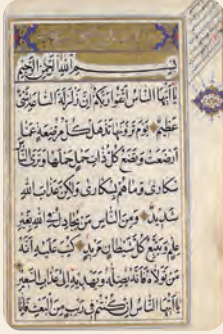 بسم الله الرحمن الرحيم
يا أيها الناس اتقوا ربكم إن زلزلة الساعة شئ
عظيم يوم ترونها تذهل كل مرضعة عما
أرضعت وتضع كل ذات حمل حملها وترى الناس
سكارى وما هم بسكارى ولكن عذاب الله
شديد ومن الناس من يجادل في الله بغير
علم ويتبع كل شيطان مريد كتب عليه أنه
من تولاه فأنه يضله ويهديه إلى عذاب السعير
يا أيها الناس إن كنتم في ريب من البعث فإنا